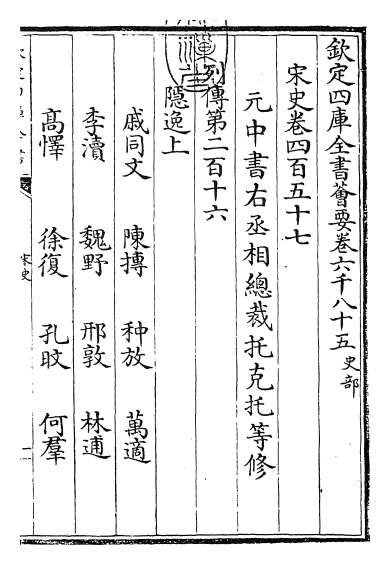 欽定四庫全書薈要卷六千八十五 史部
宋史卷四百五十七
元中書右丞相總裁托克托等修
列傳第二百十六
隱逸上
戚同文 陳摶 种放 萬適
李瀆 魏野 邢敦 林逋
高懌 徐復 孔旼 何羣
宋史
一